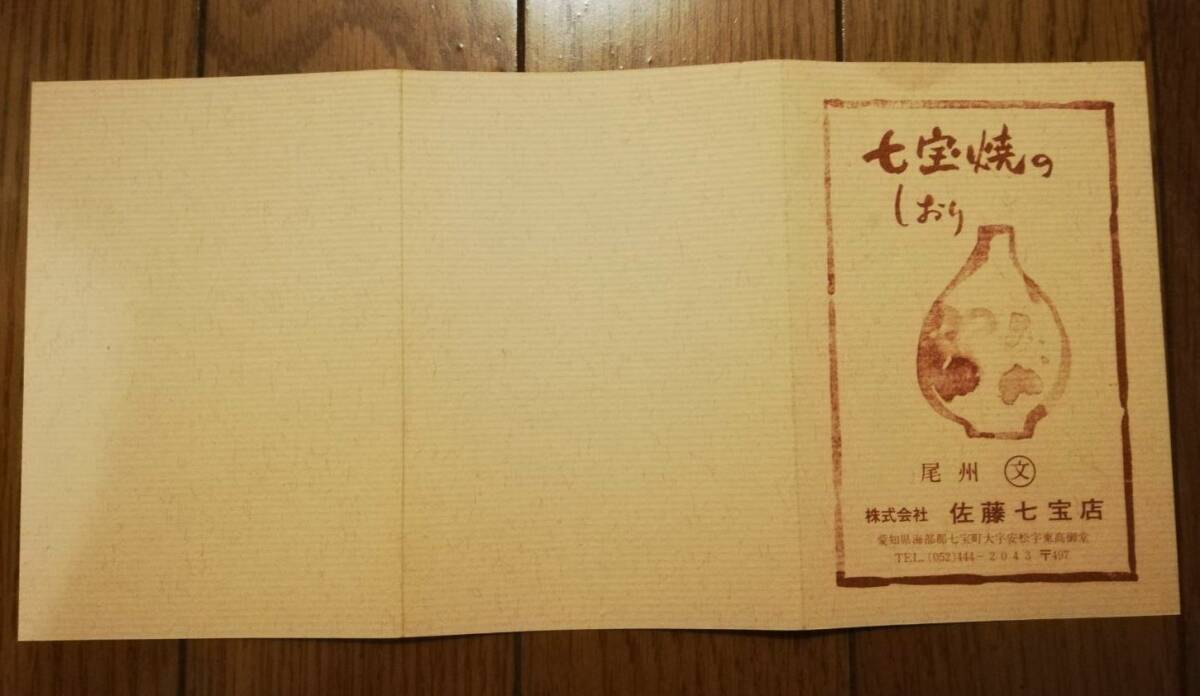 七宝焼の
しおり
尾州 ㊆文
株式会社 佐藤七宝店
愛知県海部郡七宝町大字安松字東高御堂
TEL.(052)444-2043 〒497